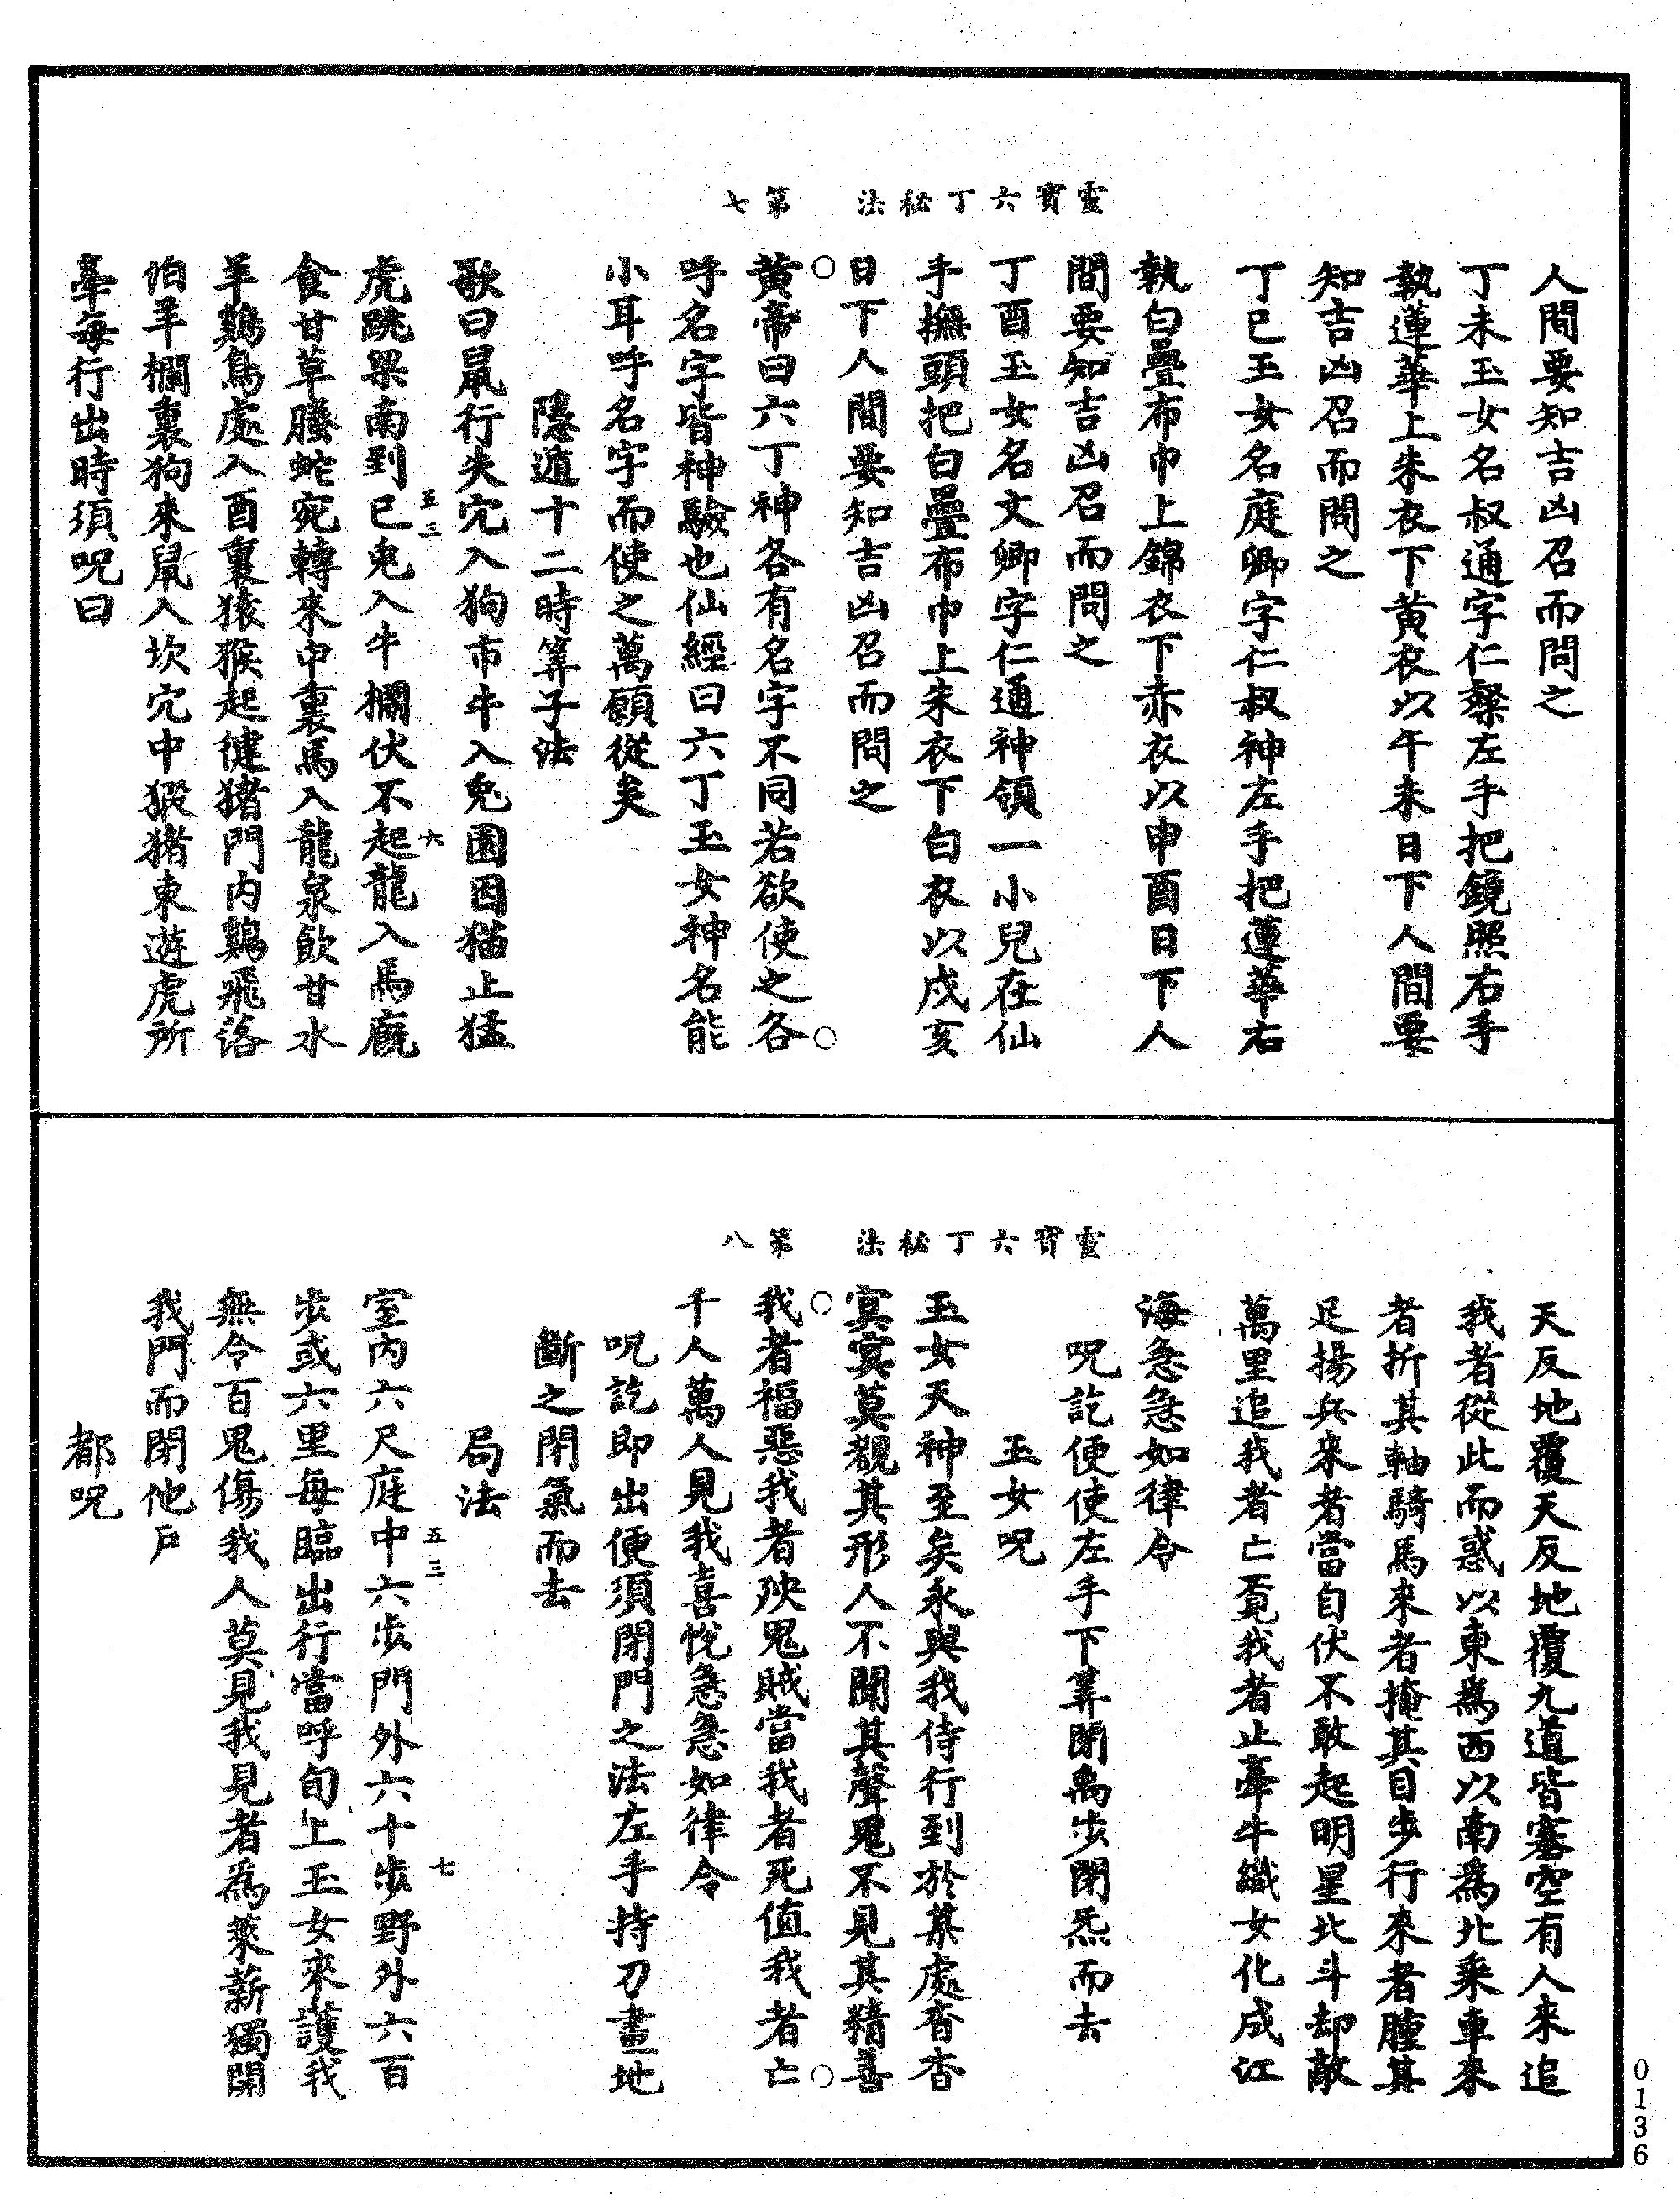 靈寶六丁秘法　第七
人間要知吉凶召而問之
丁未玉女名叔通字仁粲左手把鏡照右手
執蓮華上朱衣下黃衣以午未日下人間要
知吉凶召而問之
丁巳玉女名庭卿字仁叔神左手把蓮華右
執白疊布巾上錦衣下赤衣以申酉日下人
間要知吉凶召而問之
丁酉玉女名文卿字仁通神領一小兒在仙
手撫頭把白疊布巾上朱衣下白衣以戌亥
日下人間要知吉凶召而問之
黃帝曰六丁神各有名字不同若欲使之各
呼名字皆神驗也仙經曰六丁玉女神名能
小耳呼名字而使之萬願從矣
隱遁十二時筭子法
歌曰鼠行失穴入狗市牛入兔園因猫止猛
虎跳梁南到巳兔入牛欄伏不起龍入馬廄
食甘草騰蛇宛轉來中裏馬入龍泉飲甘水
羊鷄鳥處入酉裏猿猴起健猪門內鷄飛落
伯羊欄裏狗來鼠入坎穴中猳猪東遊虎所
牽每行出時須呪曰
五三
六
靈寶六丁秘法　第八
天反地覆天反地覆九道皆塞空有人來追
我者從此而惑以東為西以南為北乘車來
者折其軸騎馬來者掩其目步行來者腫其
足揚兵來者當自伏不敢起明星北斗却敵
萬里追我者亡覓我者止牽牛織女化成江
海急急如律令
呪訖便使左手下筭閉禹步閉炁而去
玉女呪
玉女天神至矣永與我侍行到於某處杳杳
寞寞莫覩其形人不聞其聲鬼不見其精善
我者福惡我者殃鬼賊當我者死值我者亡
千人萬人見我喜悅急急如律令
呪訖即出便須閉門之法左手持刀畫地
斷之閉氣而去
局法
室內六尺庭中六步門外六十步野外六百
步或六里每臨出行當呼旬上玉女來護我
無令百鬼傷我人莫見我見者為萊薪獨開
我門而閉他戶
都呪
五三
七
0136